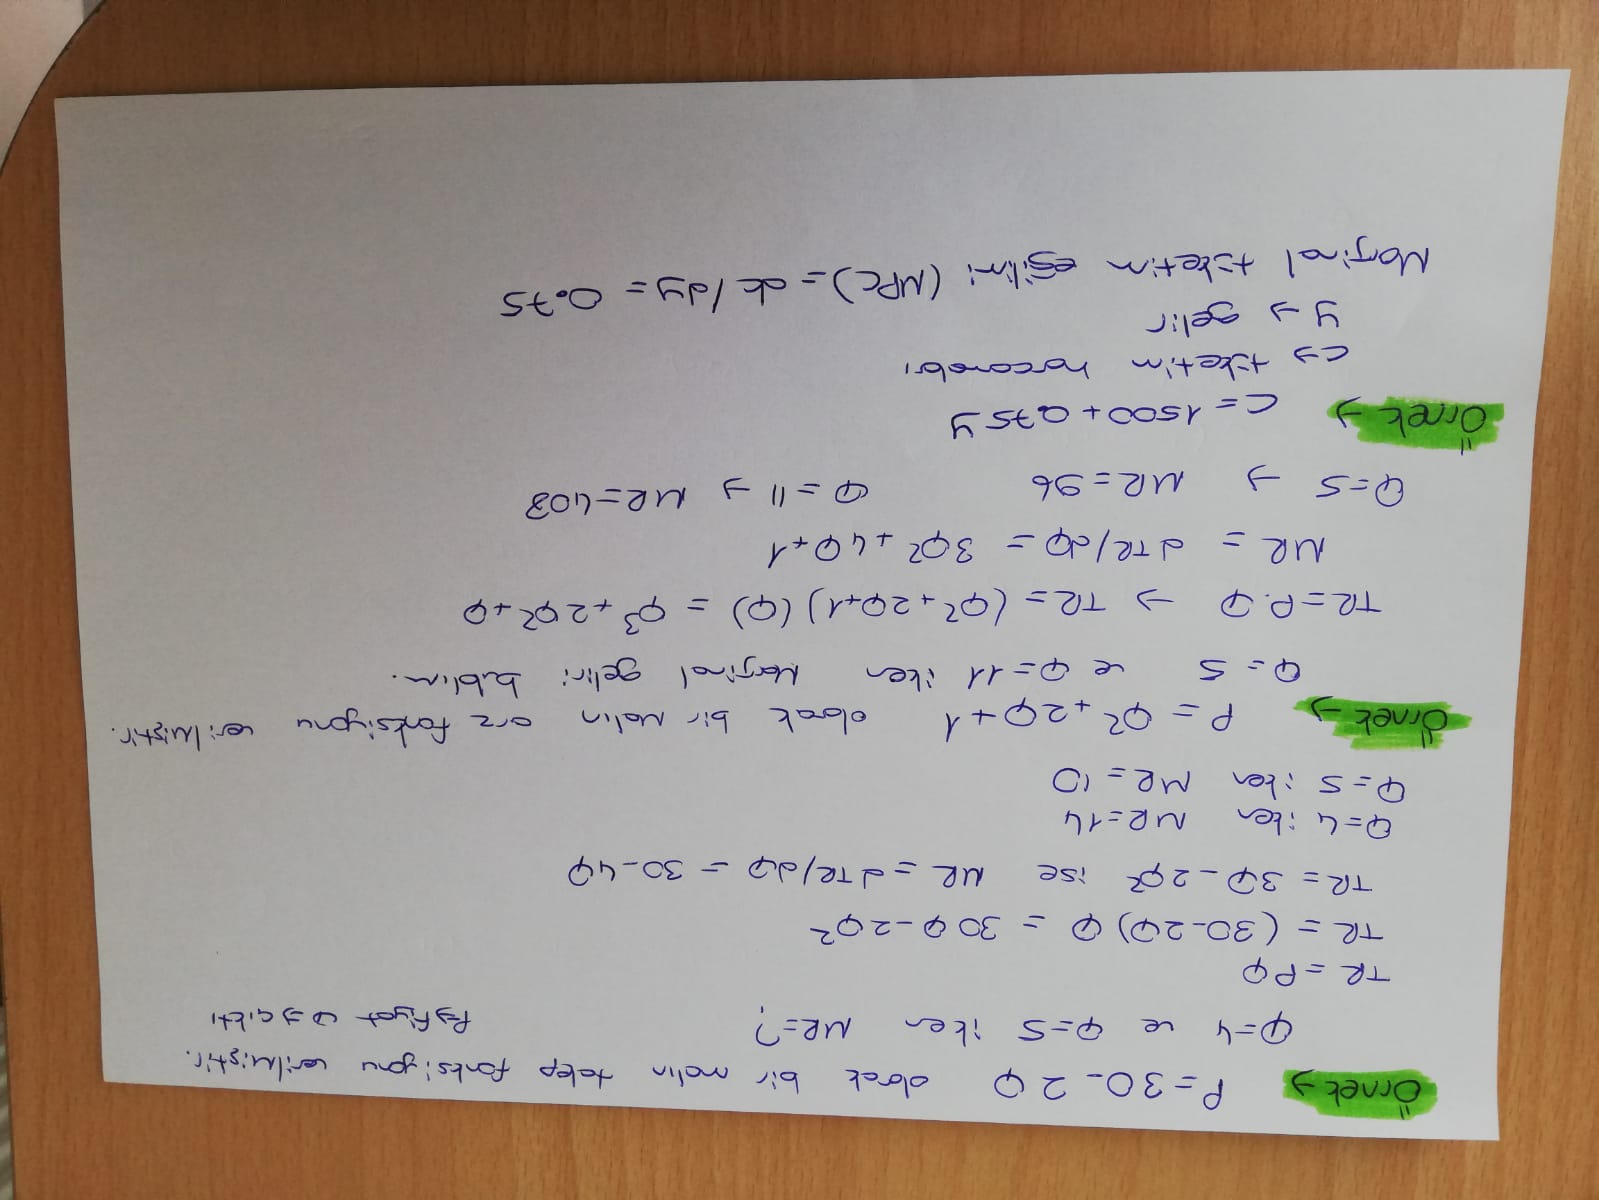 Örnek → P = 30 - 2Q olarak bir malın talep fonksiyonu verilmiştir.
Q=4 ve Q=5 iken MR=? P→fiyat Q→çıktı
TR = PQ
TR = (30-2Q) Q = 30Q-2Q²
TR = 3Q-2Q² ise MR = dTR/dQ = 30-4Q
Q=4 iken MR=14
Q=5 iken MR=10
Örnek → P = Q²+2Q+1 olarak bir malın arz fonksiyonu verilmiştir.
Q=5 ve Q=11 iken Marjinal geliri bulalım.
TR=P.Q → TR = (Q²+2Q+1) (Q) = Q³+2Q²+Q
MR = dTR/dQ = 3Q²+4Q+1
Q=5 → MR=96 Q=11 → MR=408
Örnek → C = 1500+0.75y
C→ tüketim harcaması
y → gelir
Marjinal tüketim eğilimi (MPC) = dc/dy = 0.75